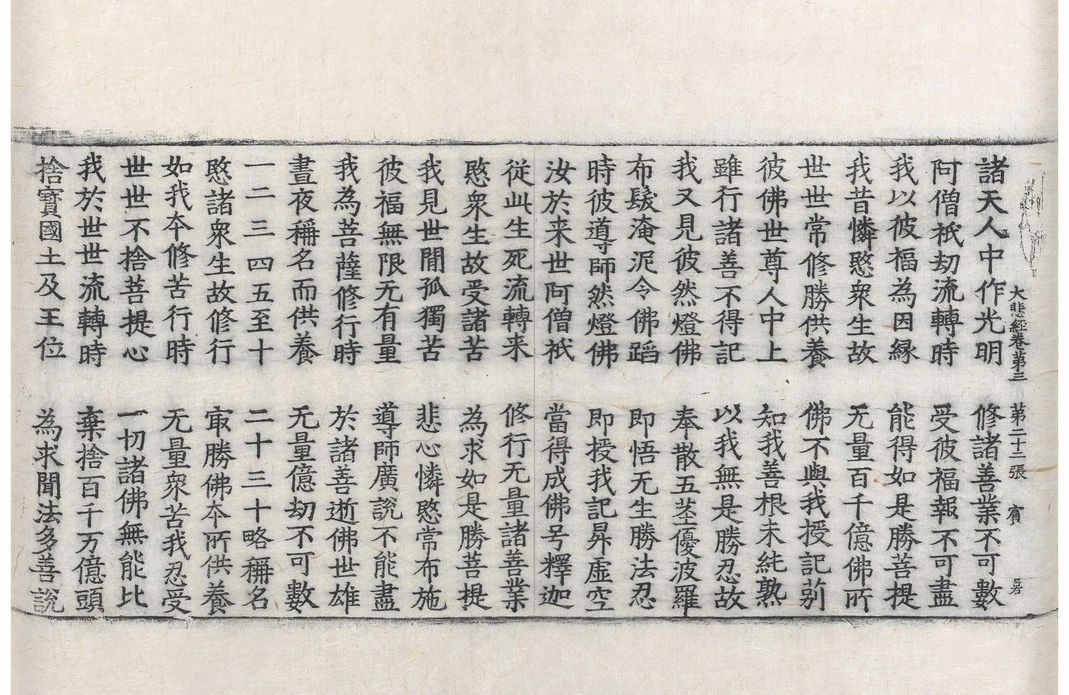 大悲經卷第三 第二十二張 賓
諸天人中作光明 修諸善業不可數
阿僧祇劫流轉時 受彼福報不可盡
我以彼福為因緣 能得如是勝菩提
我昔憐愍衆生故 无量百千億佛所
世世常修勝供養 佛不與我授記莂
彼佛世尊人中上 知我善根未純熟
雖行諸善不得記 以我無是勝忍故
我又見彼然燈佛 奉散五莖優波羅
布髮淹泥令佛蹈 即悟无生勝法忍
時彼導師然燈佛 即授我記昇虛空
汝於来世阿僧祇 當得成佛号釋迦
從此生死流轉来 修行无量諸善業
愍衆生故受諸苦 為求如是勝菩提
我見世間孤獨苦 悲心憐愍常布施
彼福無限无有量 導師廣說不能盡
我為菩薩修行時 於諸善逝佛世雄
晝夜稱名而供養 无量億劫不可數
一二三四五至十 二十三十略稱名
愍諸衆生故修行 㝡勝佛夲所供養
如我夲修苦行時 无量衆苦我忍受
世世不捨菩提心 一切諸佛無能比
我於世世流轉時 棄捨百千万億頭
捨寶國土及王位 為求聞法多善說